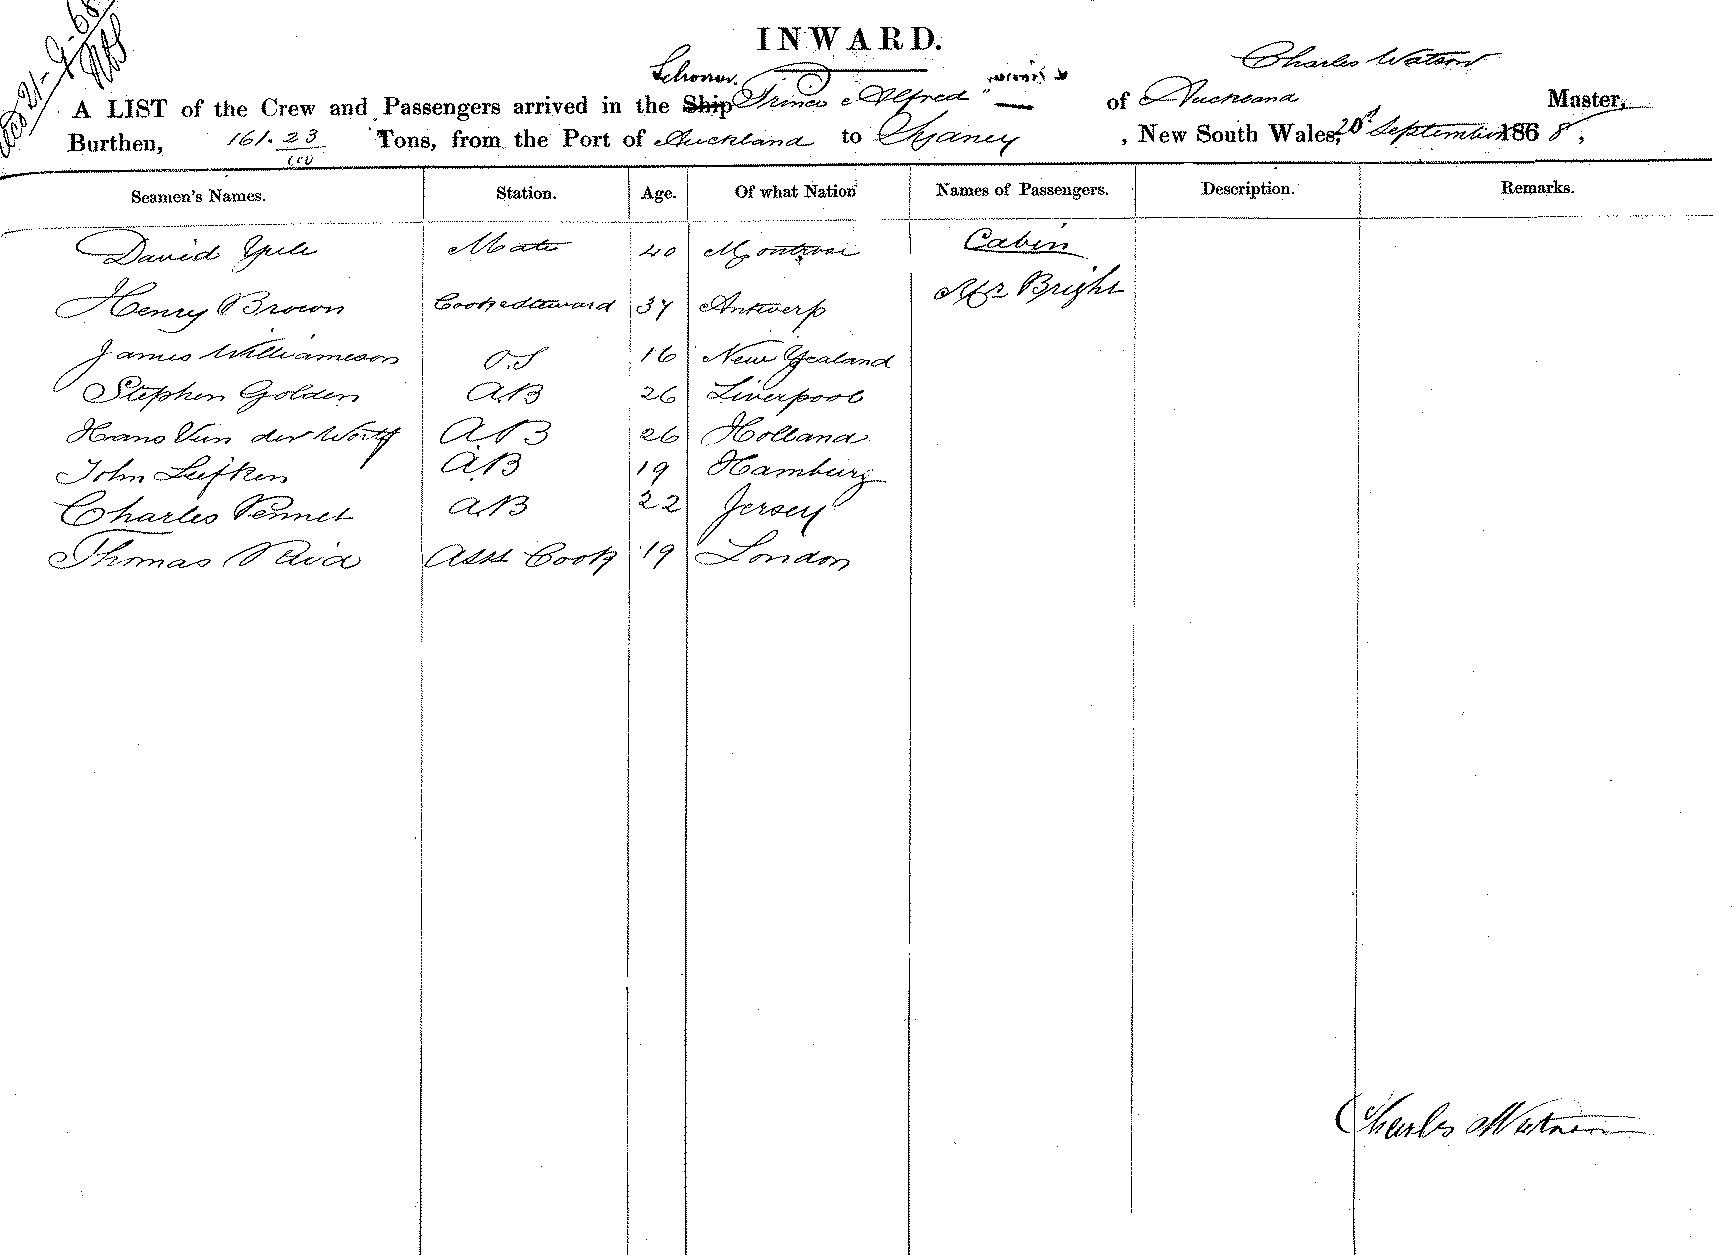 21-9-68
INWARD.
Charles Watson
Schooner
A LIST of the Crew and Passengers arrived in the Ship Prince Alfred" of Auckland Master,
Burthen, 161.23/100 Tons, from the Port of Auckland to Sydney, New South Wales, 20th September 1868,
Seamen's Names. Station. Age. Of what Nation Names of Passengers. Description. Remarks.
David Yule Mate 40 Montrose Cabin
Henry Brown Cook & Steward 37 Antwerp Mr Bright
James Williameson O.S 16 New Zealand
Stephen Golden A.B 26 Liverpool
Hans Van der Worff A.B 26 Holland
John Lufken A.B 19 Hamburg
Charles Pennet A.B 22 Jersey
Thomas Reid Asst Cook 19 London
Charles Watson